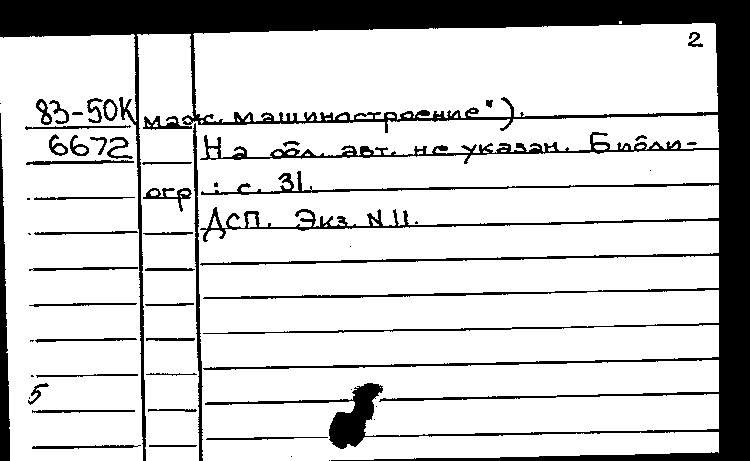 2
83-50К маж. машиностроение").
6672 На обл. авт. не указан. Библи-
огр: с. 31.
ДСП. Экз. N 11.
5